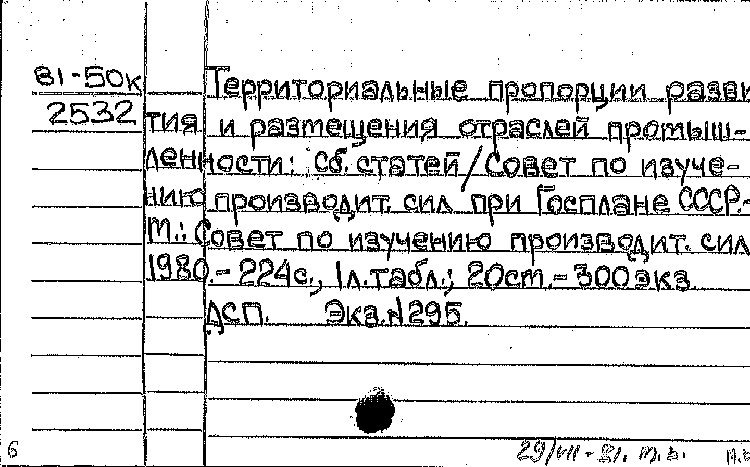 81-50к Территориальные пропорции разви
2532 тия и размещения отраслей промыш-
ленности: Сб. статей/Совет по изуче-
нию производит. сил при Госплане СССР.-
М.: Совет по изучению производит. сил
1980.- 224с., 1л.табл.; 20см.- 300экз
ДСП. Экз.№295.
6 29/VII-81. м.в.